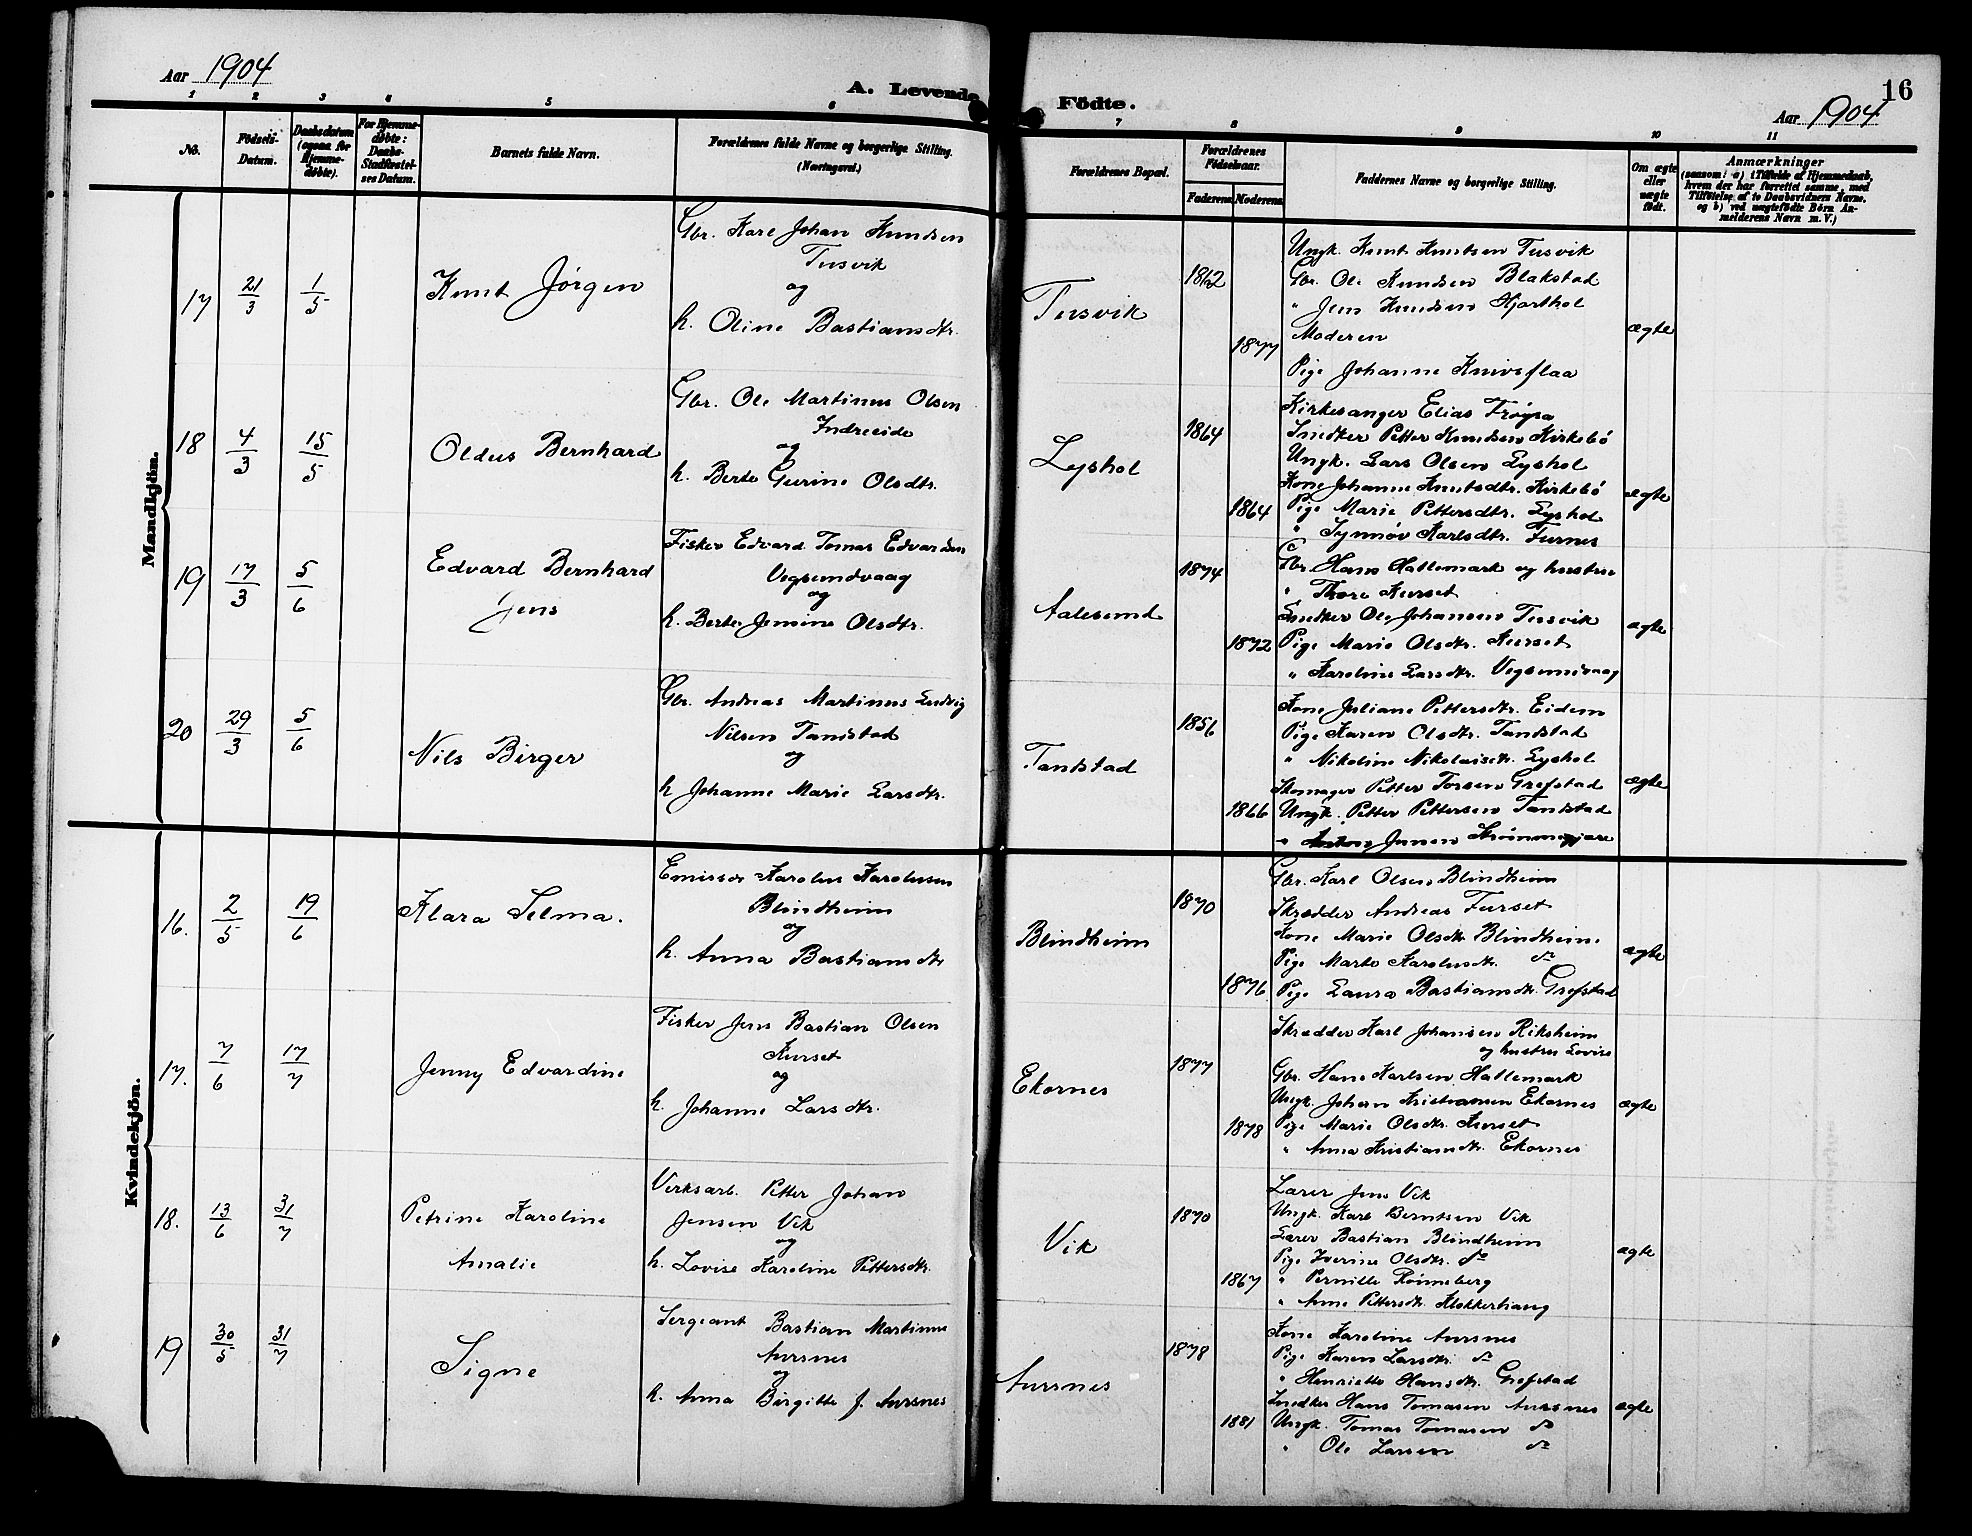 Aar 1904
A. Levende
1 2 3 4 5 6
No.
Födsels-
Datum.
Daabsdatum
(ogsaa for
Hjemme-
døbte).
For Hjemme-
døbte:
Daabs-
Stadfæstel-
ses Datum.
Barnets fulde Navn.
Forældrenes fulde Navne og borgerlige Stilling.
(Næringsvei.)
Mandkjön.
17 21/3 1/5 Knut Jørgen
Gbr. Karl Johan Knudsen
Tusvik
og
h. Oline Bastiansdtr.
18 4/3 15/5 Oldus Bernhard
Gbr. Ole Martinus Olsen
Indreeide
og
h. Berte Gurine Olsdtr.
19 17/3 5/6 Edvard Bernhard
Jens
Fisker Edvard Tomas Edvardsen
Vegsundvaag
og
h. Berte Jensine Olsdtr.
20 29/3 5/6 Nils Birger
Gbr. Andreas Martinus Ludvig
Nilsen Tandstad
og
h Johanne Marie Larsdtr.
Kvindekjön.
16. 2/5 19/6 Klara Selma.
Emissær Karolus Karolusen
Blindheim
og
h. Anna Bastiansdtr
17. 7/6 17/7 Jenny Edvardine
Fisker Jens Bastian Olsen
Kurset
og
h. Johanne Larsdtr.
18. 13/6 31/7 Petrine Karoline
Amalie
Verksarb. Petter Johan
Jensen Vik
og
h. Lovise Karoline Pettersdtr.
19 30/5 31/7 Signe
Sergeant Bastian Martinus
Aursnes
og
h. Anna Birgitte J. Aursnes
16
Födte.
Aar 1904
7 8 9 10 11
Forældrenes Bopæl.
Forældrenes
Födselsaar.
Faderens Moderens
Faddernes Navne og borgerlige Stilling.
Om ægte
eller
uægte
født.
Anmærkninger
(saasom: a) i Tilfælde af Hjemmedaab,
hvem der har forrettet samme, med
Tilföielse af to Daabsvidners Navne,
og b) ved uægtefödte Börn An-
melderens Navn m. V.)
Tusvik 1862 1877 ægte
Ungk. Knut Knutsen Tusvik
Gbr. Ole Knudsen Blakstad
" Jens Knudsen Hjorthol
Moderen
Pige Johanne Knivsflaa
Lyshol 1864 1864 ægte
Kirkesanger Elias Frøysa
Snedker Petter Knudsen Kirkebø
Ungk. Lars Olsen Lyshol
Kone Johanne Knutsdtr. Kirkebø
Pige Marie Pettersdtr. Lyshol
" Synnøv Karlsdtr. Furnes
Aalesund 1874 1872 ægte
Gbr. Hans Hatlemark og hustru
" Thore Kurset
Snedker Ole Johansen Tusvik
Pige Marie Olsdtr. Kurset
" Karoline Larsdtr. Vegsundvaag
Tandstad 1856 1866 ægte
Kone Juliane Pettersdtr. Eidem
Pige Karen Olsdtr. Tandstad
" Nikoline Nikolaisdtr. Lyshol
Skomager Petter Torsen Grefstad
Ungk. Petter Pettersen Tandstad
" Jensen
Blindheim 1870 1876 ægte
Gbr. Karl Olsen Blindheim
Skrædder Andreas Furset
Kone Marie Olsdtr Blindheim.
Pige Marte Karolusdtr. do
Pige Laura Bastiansdtr. Grefstad
Ekornes 1877 1878 ægte
Skrædder Karl Johansen Riksheim
og hustru Lovise
Gbr. Hans Karlsen Hatlemark
Ungk. Johan Kristiansen Ekornes
Pige Marie Olsdtr. Kurset
" Anna Kristiansdtr. Ekornes
Vik 1870 1867 ægte
Lærer Jens Vik
Ungk. Karl Berntsen Vik
Lærer Bastian Blindheim
Pige Iverine Olsdtr. do
" Pernille Rønneberg
" Anne Pettersdtr. Klokkerhaug
Aursnes 1878 1881 ægte
Kone Karoline Aursnes
Pige Karen Larsdtr. do
" Henriette Hansdtr. Grefstad
Snedker Hans Tomasen Aursnes
Ungk. Tomas Tomasen do
" Ole Larsen do